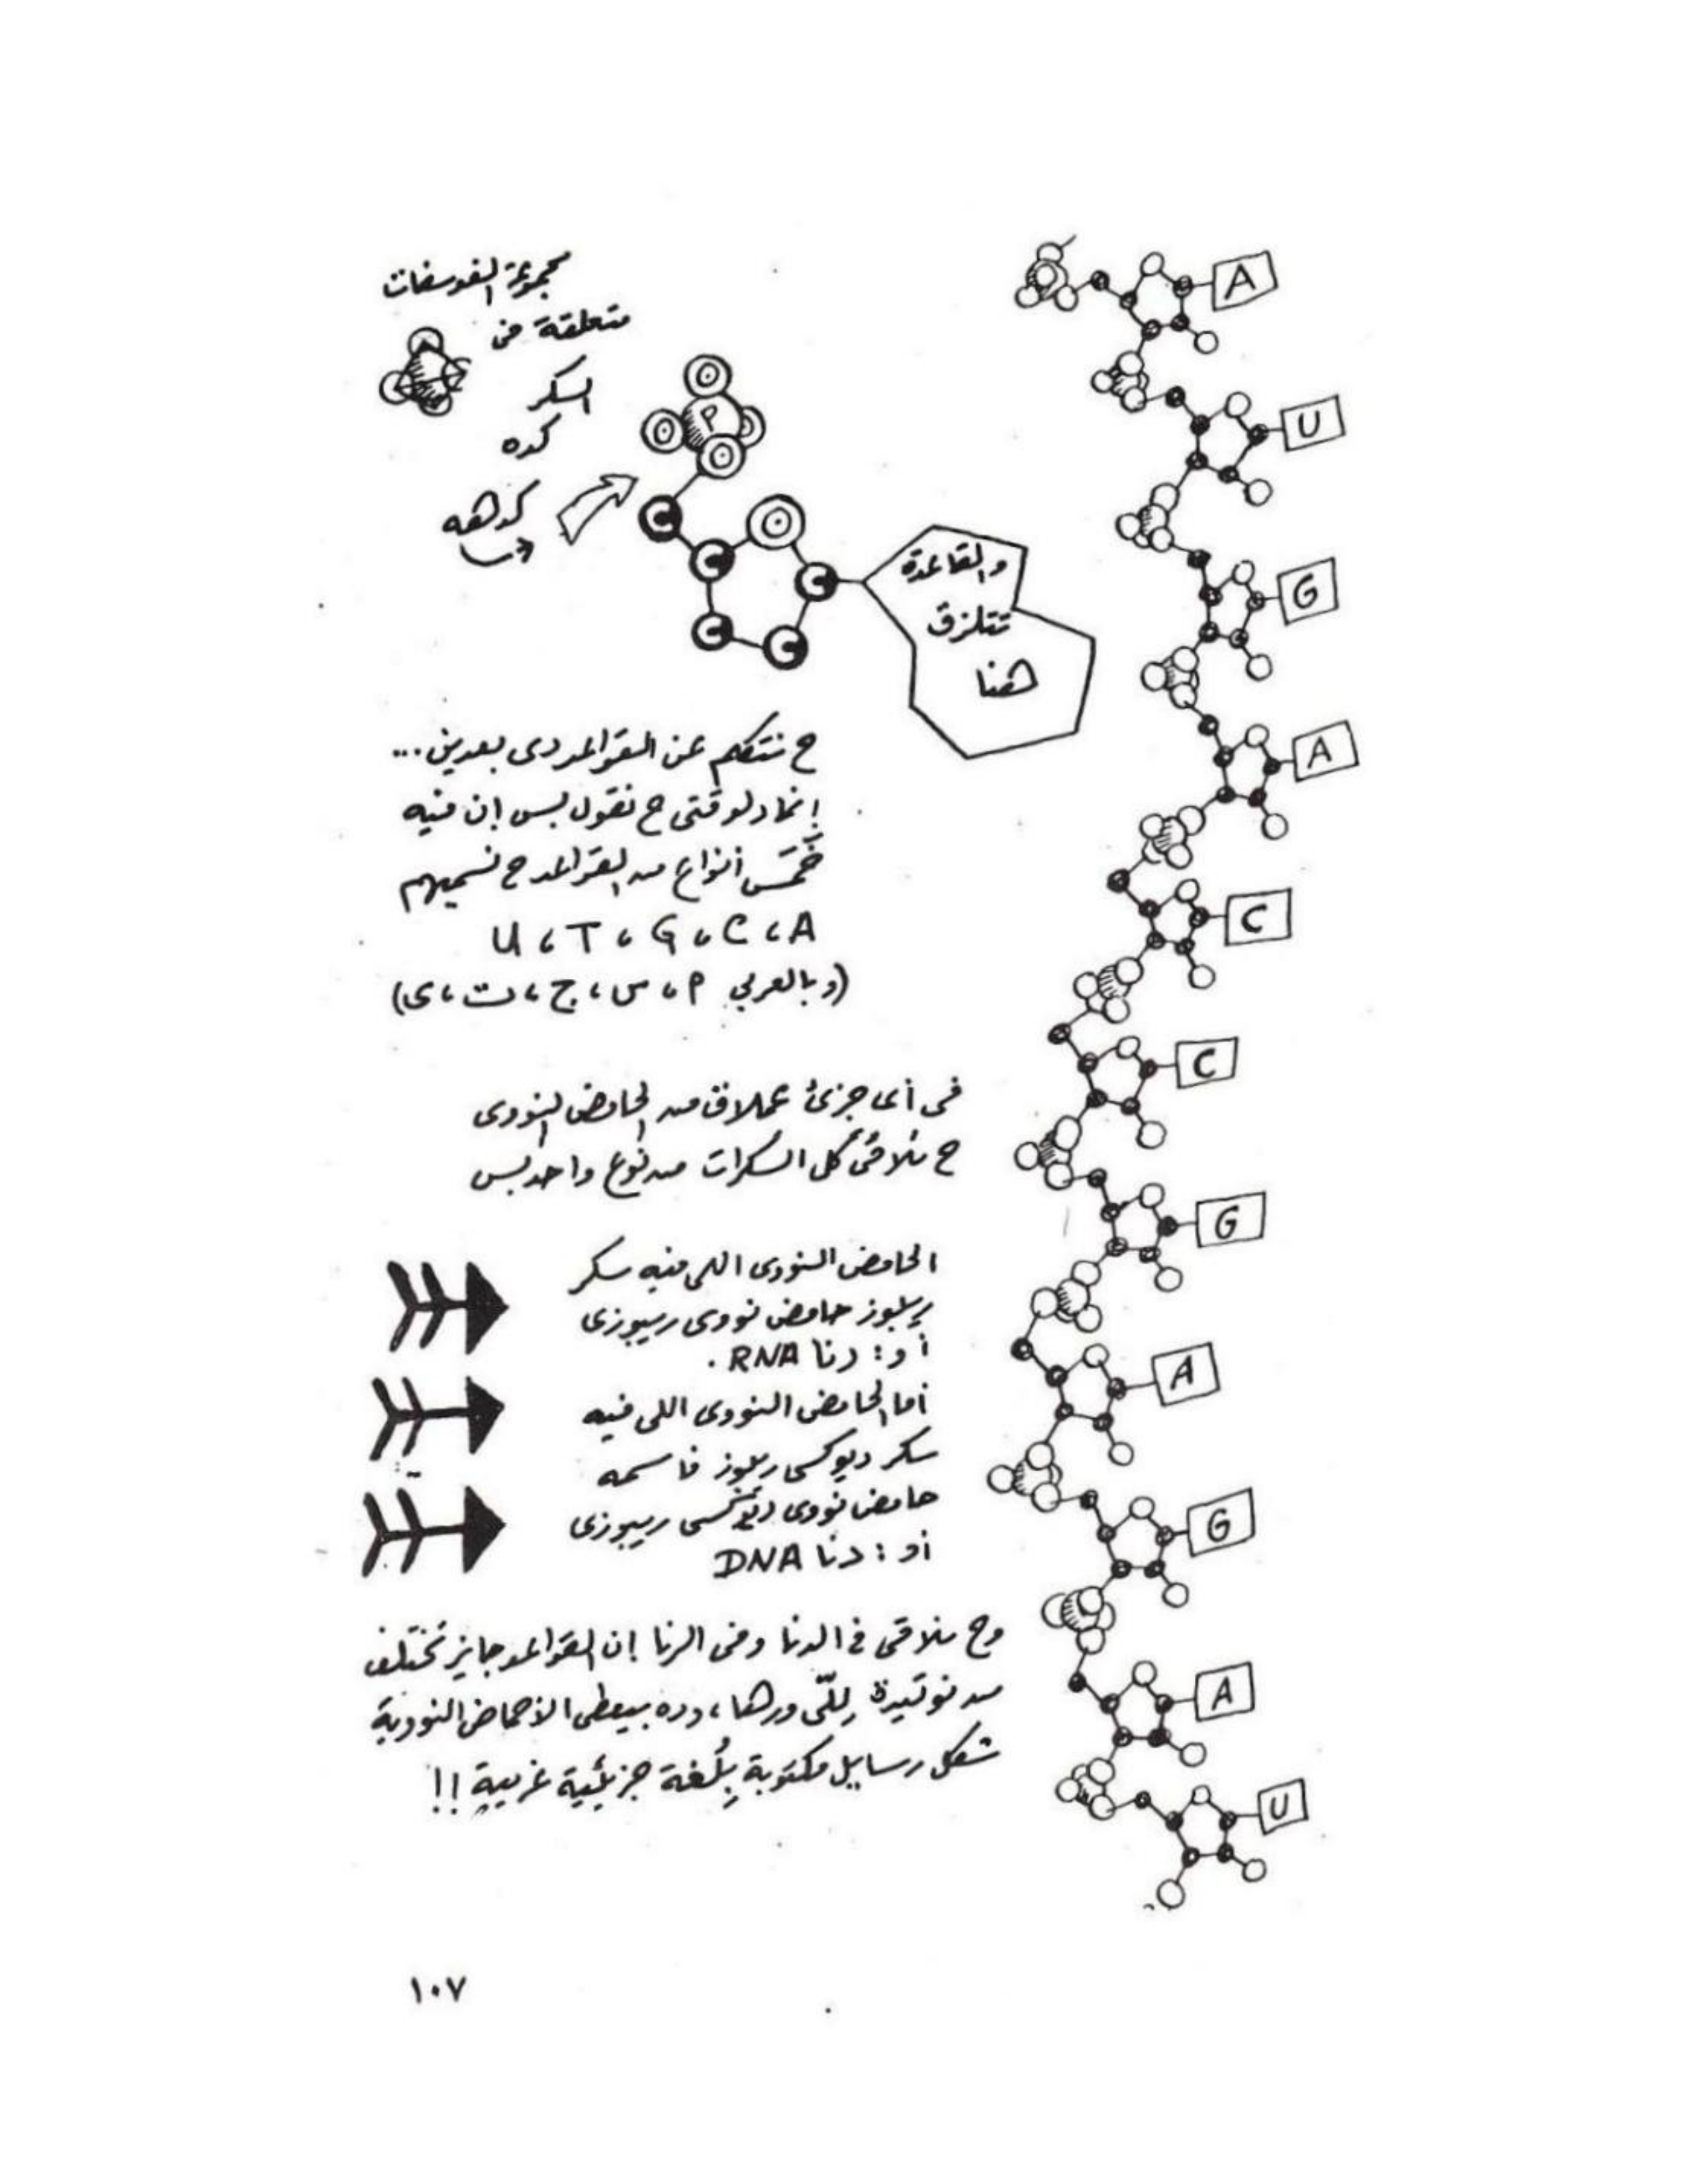 مجموعة الفوسفات
متعلقة فى
السكر
كده
كدهه
P
O
O
O
O
O
C
C
C
C
C
والقاعدة
تتلزق
هنا
ح نتكلم عن القواعد دى بعدين...
إنما دلوقتى ح نقول بس إن فيه
خَمَس أنواع من القواعد ح نسميهم
A، C، G، T، U
(وبالعربي أ، س، ج، ت، ى)
فى أى جزئ عملاق من الحامض النووى
ح نلاقى كل السكرات من نوع واحد بس
الحامض النووى اللى فيه سكر
ريبوز حامض نووى ريبوزى
أو: رنا RNA.
أما الحامض النووى اللى فيه
سكر ديوكسى ريبوز فاسمه
حامض نووى ديوكسى ريبوزى
أو: دنا DNA
وح نلاقى فى الدنا وفى الرنا إن القواعد جايز تختلف
من نوتيدة لِلّى وراها، وده بيعطى الأحماض النووية
شكل رسايل مكتوبة بِلُغة جزيئية غريبة!!
A
U
G
A
C
C
G
A
G
A
U
١٠٧